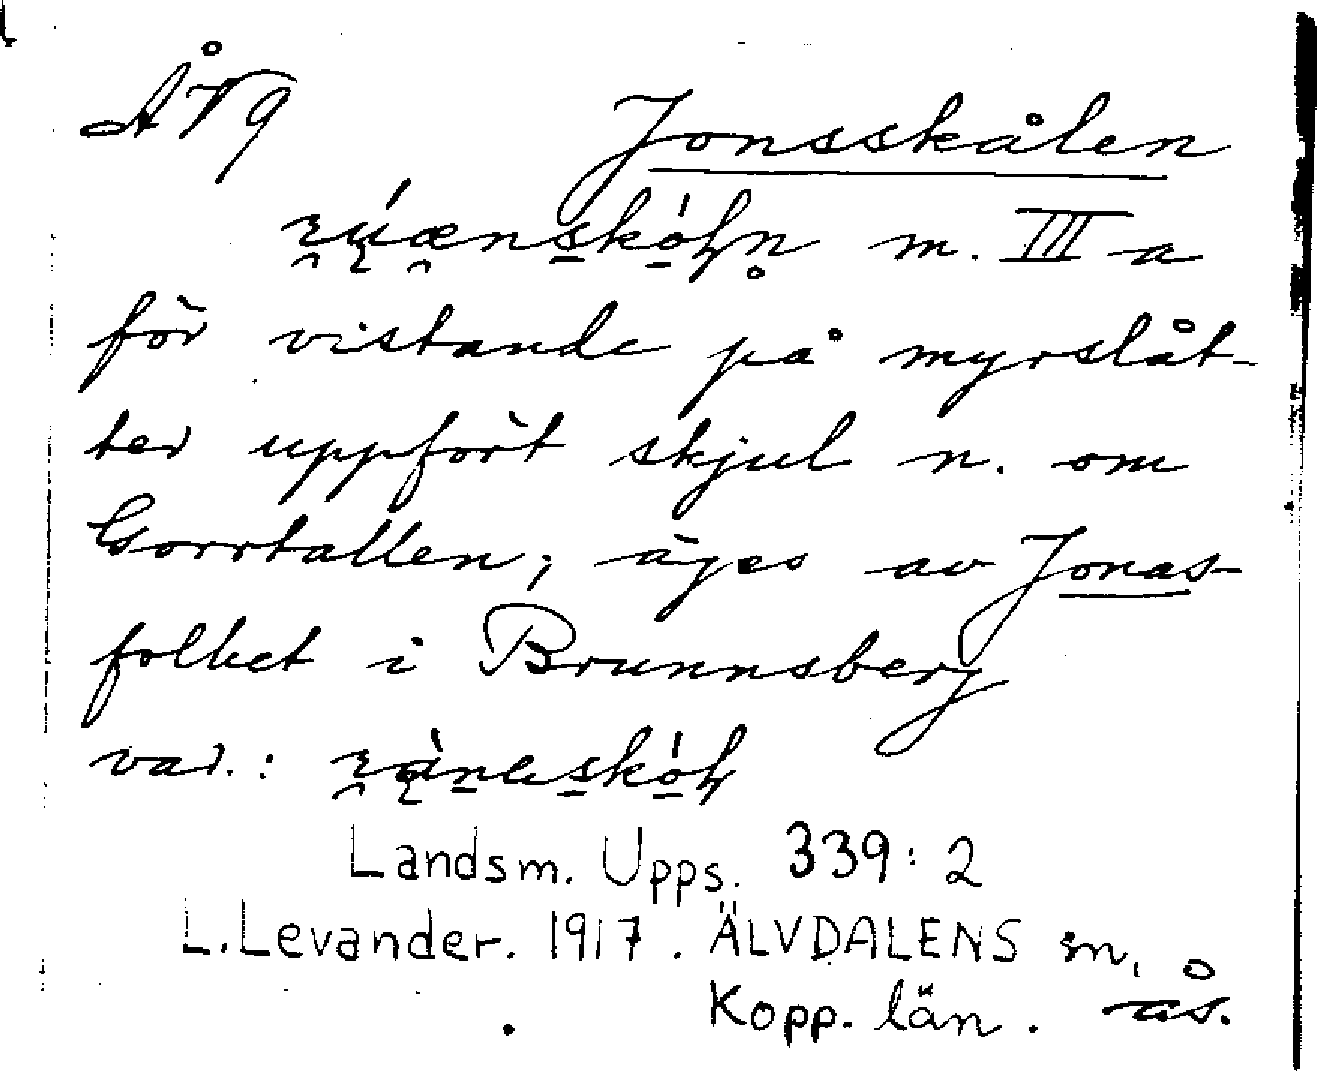 Jonsskålen
m. III a
för vistande på myrslåt-
ter uppfört skjul n. om
Gorrtallen; äges av Jonas-
folket i Brunnsberg
var.:
Landsm. Upps. 339:2
L. Levander. 1917. ÄLVDALENS sn,
Kopp. län. ås.